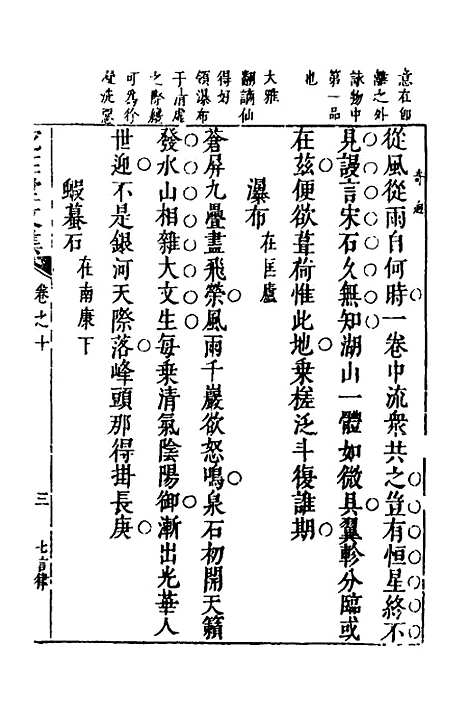 意在卽
離之外
詠物中
第一品
也
奇
從風從雨自何時一卷中流衆共之豈有恒星終不
見謾言宋石久無知湖山一體如微具翼軫分臨或
在茲便欲葺荷惟此地乗槎泛斗復誰期
大雅
瀑布 在匡廬
翻謫仙
得好
領瀑布
于清虛
之際
可爲徐
凝洗
蒼屏九疊盡飛縈風雨千巖欲怒鳴泉石初開天籟
發水山相雜大文生每乗清氣陰陽御漸出光華人
世迎不是銀河天際落峰頭那得掛長庚
蝦蟇石 在南康下
卷之十
三
七言律